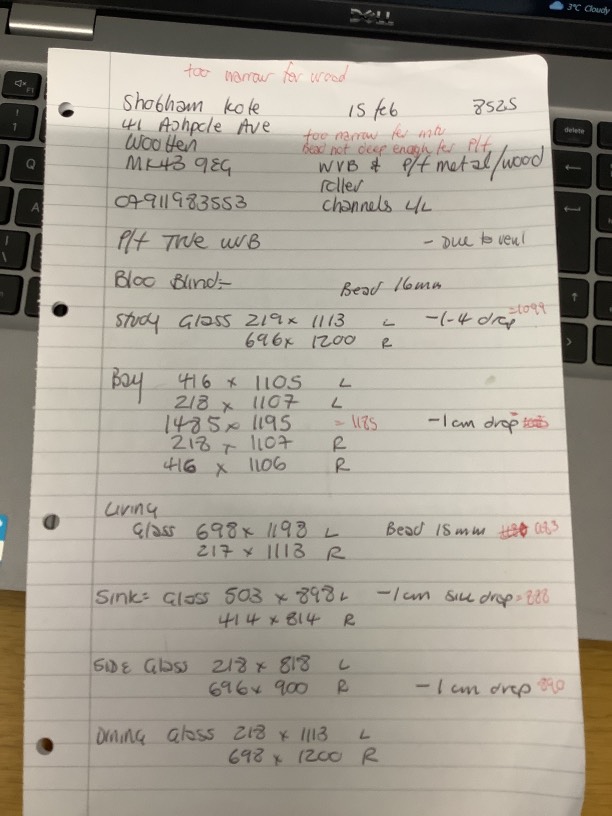 too narrow for wood
Shobham Kote 15 feb 8525
41 Ashpole Ave
Wootten too narrow for intu
bead not deep enough for P/f
MK43 9EG WVB & P/f metal/wood
roller
07911983553 channels c/c
P/f True WB - Due to vent
Bloc Blind:- Bead 16mm
Study Glass 219 x 1113 L -1-4 drop =1099
696 x 1200 R
Bay 416 x 1105 L
218 x 1107 L
1485 x 1195 = 1185 -1cm drop
218 x 1107 R
416 x 1106 R
Living
Glass 698 x 1193 L Bead 18mm
217 x 1113 R
Sink= Glass 503 x 898 L -1cm sill drop = 888
414 x 814 R
SIDE Glass 218 x 818 L
696 x 900 R -1cm drop 890
Dining Glass 218 x 1113 L
698 x 1200 R
DELL
3°C Cloudy
delete
Q
A
F1